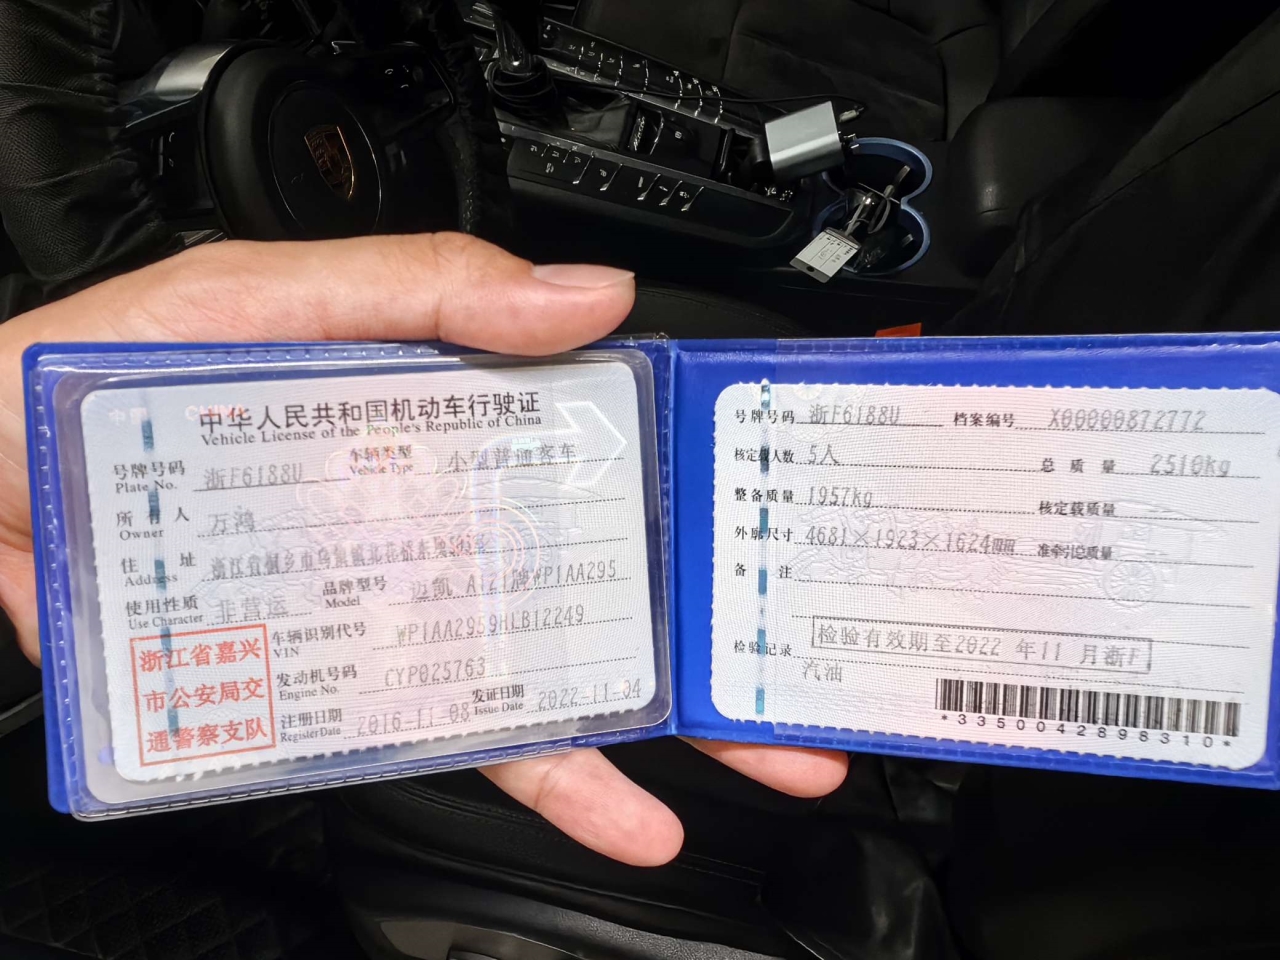 中华人民共和国机动车行驶证
Vehicle License of the People's Republic of China
号牌号码 浙F6188U 车辆类型 小型普通客车
Plate No. Vehicle Type
所有人 万鸿
Owner
住址 浙江省桐乡市乌镇镇北花桥东堍
Address
使用性质 非营运 品牌型号 迈凯 牌WP1AA295
Use Character Model
车辆识别代号 WP1AA2959HLB12249
VIN
发动机号码 CYP025763
Engine No.
注册日期 2016-11-08 发证日期 2022-11-04
Register Date Issue Date
浙江省嘉兴
市公安局交
通警察支队
号牌号码 浙F6188U 档案编号 X00000872772
核定载人数 5人 总质量 2510kg
整备质量 1957kg 核定载质量
外廓尺寸 4681×1923×1624mm 准牵引总质量
备注
检验记录 检验有效期至2022年11月浙F
汽油
*3350042898310*